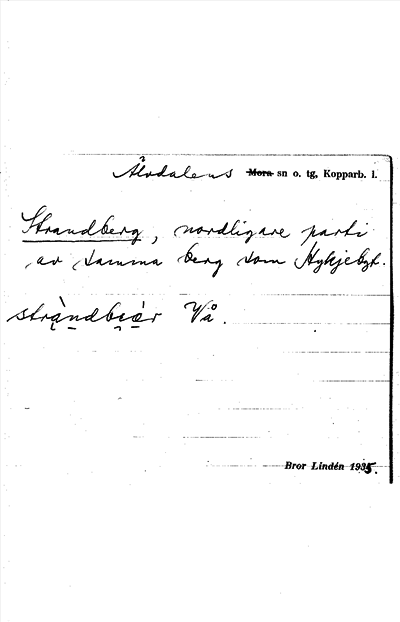 Älvdalens Mora sn o. tg, Kopparb. l.
Strandberg, nordligare parti
av samma berg som
strą̀ndbįèr Vå.
Bror Lindén 1935.